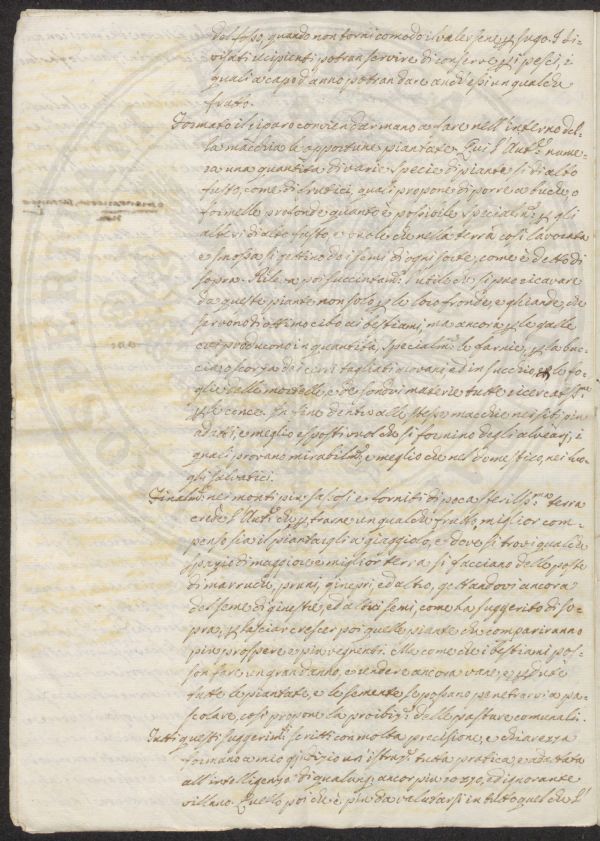 del fosso, quando non torni comodo il valersene per sugo. I di-
visati recipienti potran servire di conserve per i pesci, i
quali a capo d'anno potran dare anch'essi un qualche
frutto.
Formato il riparo convien dar mano a fare nell'interno del-
la macchia le opportune piantate. Qui l'Aut.e nume-
ra una quantità di varie specie di piante sì di alto
fusto, come di frutici, quali propone di porre a buche, o
formelle profonde quanto è possibile specialm.e per gli
alberi di alto fusto, e vuole che nella terra così lavorata
e smossa si gettino de i semi di ogni sorte, come è detto di
sopra. Rileva poi succintam.e l'utile che si può ricavare
da queste piante non solo per le loro fronde, e ghiande, che
servono di ottimo cibo ai bestiami, ma ancora per le galle
che producono in quantità, specialm.e le farnie, per la buc-
cia, o scorza dei cerri tagliati giovani ed in succhio, e le fo-
glie delle mortelle, che sono di materie tutte ricercatiss.me
per le conce. In fine dentro alle stesse macchie nei siti più
adatti, e meglio esposti vuol che si fornino degli alveari, i
quali provano mirabilm.e, e meglio che nel domestico, nei luo-
ghi salvatici.
Finalm.e nei monti più sassosi e forniti di poca sterilliss.ma terra
crede l'Aut.e che per trarne un qualche frutto, miglior com-
penso sia il piantargli a giaggiolo, e dove si trovi qualche
spazio di maggiore e miglior terra si facciano delle poste
di marruche, pruni, ginepri, ed altro, gettandovi ancora
del seme di ginestre, ed altri semi, come ha suggerito di so-
pra, per lasciar crescer poi quelle piante che compariranno
più prospere e più vegnenti. Ma come che i bestiami pos-
son fare un gran danno, e rendere ancora vane, e perdute
tutte le piantate, e le semente se possano penetrarvi a pa-
scolare, così propone la proibiz.e delle pasture comunali.
Tutti questi suggerim.ti scritti con molta precisione, e chiarezza
formano a mio giudizio un'istruz.e tutta pratica, e adattata
all'intelligenza di qualunq.e ancor più rozzo, ed ignorante
villano. Quello poi che è più da valutarsi in tutto quel che l'